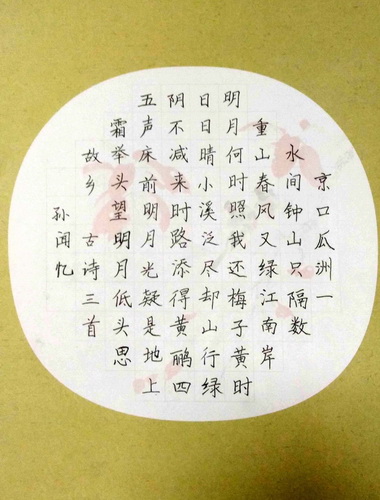 京口瓜洲一
水间钟山只隔数
重山春风又绿江南岸
明月何时照我还梅子黄时
日日晴小溪泛尽却山行绿
阴不减来时路添得黄鹂四
五声床前明月光疑是地上
霜举头望明月低头思
故乡 古诗三首
孙闻忆